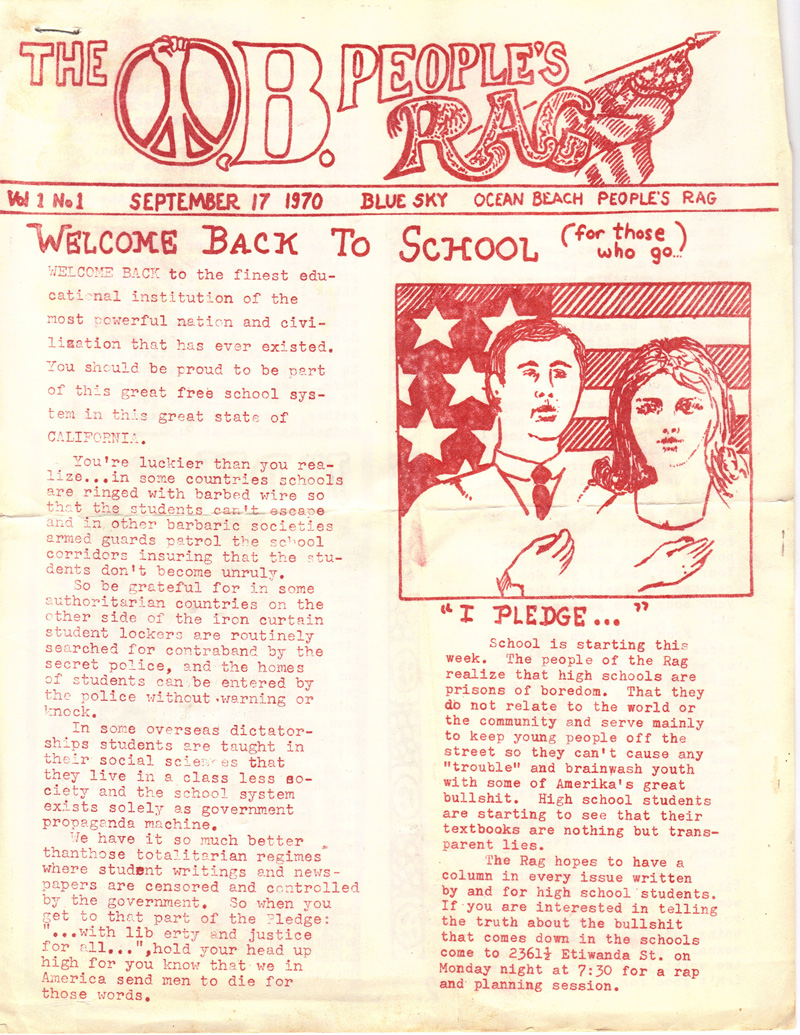 THE O.B. PEOPLE'S
RAG
Vol 1 No 1 SEPTEMBER 17 1970 BLUE SKY OCEAN BEACH PEOPLE'S RAG
WELCOME BACK TO SCHOOL (for those who go...)
WELCOME BACK to the finest edu-
cational institution of the
most powerful nation and civi-
lization that has ever existed.
You should be proud to be part
of this great free school sys-
tem in this great state of
CALIFORNIA.
You're luckier than you rea-
lize...in some countries schools
are ringed with barbed wire so
that the students can't escape
and in other barbaric societies
armed guards patrol the school
corridors insuring that the stu-
dents don't become unruly.
So be grateful for in some
authoritarian countries on the
other side of the iron curtain
student lockers are routinely
searched for contraband by the
secret police, and the homes
of students can be entered by
the police without warning or
knock.
In some overseas dictator-
ships students are taught in
their social sciences that
they live in a class less so-
ciety and the school system
exists solely as government
propaganda machine.
We have it so much better
thanthose totalitarian regimes
where student writings and news-
papers are censored and controlled
by the government. So when you
get to that part of the Pledge:
"...with lib erty and justice
for all...",hold your head up
high for you know that we in
America send men to die for
those words.
"I PLEDGE..."
School is starting this
week. The people of the Rag
realize that high schools are
prisons of boredom. That they
do not relate to the world or
the community and serve mainly
to keep young people off the
street so they can't cause any
"trouble" and brainwash youth
with some of Amerika's great
bullshit. High school students
are starting to see that their
textbooks are nothing but trans-
parent lies.
The Rag hopes to have a
column in every issue written
by and for high school students.
If you are interested in telling
the truth about the bullshit
that comes down in the schools
come to 2361½ Etiwanda St. on
Monday night at 7:30 for a rap
and planning session.